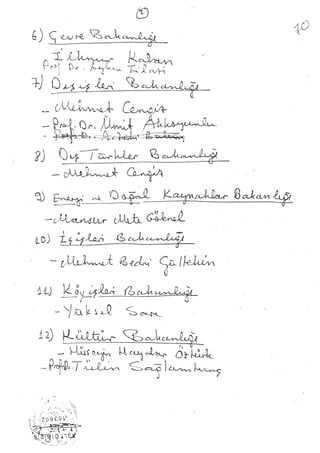 (2)
70
6) Çevre Bakanlığı
İlknur Kalan
Prof. Dr.
7) Dışişleri Bakanlığı
- Mehmet Cengiz
- Prof. Dr. Ümit Akkoyunlu
- Prof. Dr.
8) Dış Türkler Bakanlığı
- Mehmet Cengiz
9) Enerji ve Doğal Kaynaklar Bakanlığı
- Mansur Mete Göknel
10) İçişleri Bakanlığı
- Mehmet Bedri Gültekin
11) Köyişleri Bakanlığı
- Yüksel Sarı
12) Kültür Bakanlığı
- Hüseyin Haydar Öztürk
- Prof. Dr. Tülin Sağlamtunç